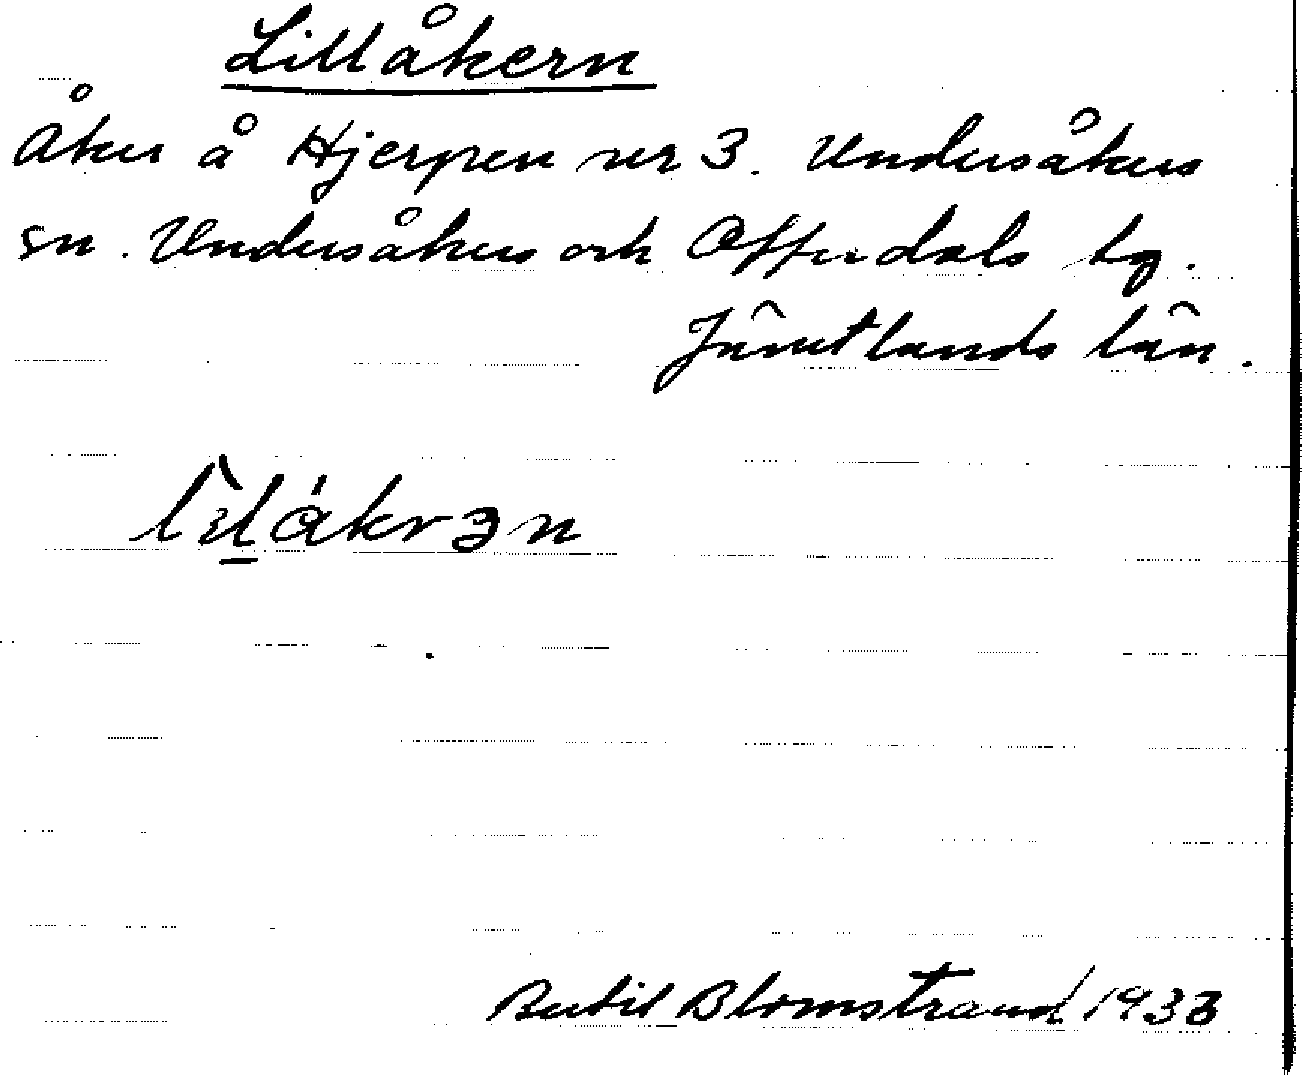 Lillåkern
Åker å Hjerpen nr 3. Undersåkers
sn. Undersåkers och Offerdals tg.
Jämtlands län.
Bertil Blomstrand 1933